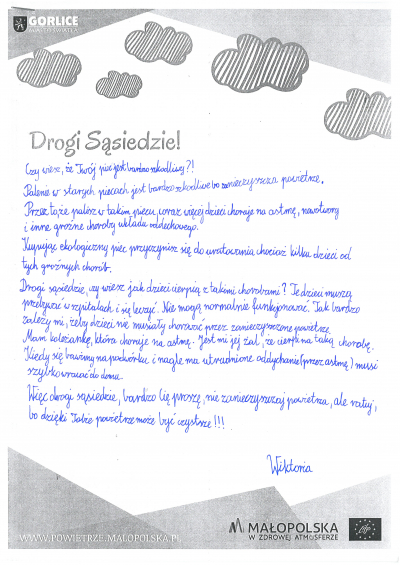 GORLICE
MIASTO ŚWIATŁA
Drogi Sąsiedzie!
Czy wiesz, że Twój piec jest bardzo szkodliwy?!
Palenie w starych piecach jest bardzo szkodliwe bo zanieczyszcza powietrze.
Przez to, że palisz w takim piecu, coraz więcej dzieci choruje na astmę, nowotwory
i inne groźne choroby układu oddechowego.
Kupując ekologiczny piec przyczynisz się do uratowania chociaż kilku dzieci od
tych groźnych chorób.
Drogi sąsiedzie, czy wiesz jak dzieci cierpią z takimi chorobami? Te dzieci muszą
przebywać w szpitalach i się leczyć. Nie mogą normalnie funkcjonować. Tak bardzo
zależy mi, żeby dzieci nie musiały chorować przez zanieczyszczone powietrze.
Mam koleżankę, która choruje na astmę. Jest mi jej żal, że cierpi na taką chorobę.
Kiedy się bawimy na podwórku i nagle ma utrudnione oddychanie (przez astmę) musi
szybko wracać do domu.
Więc drogi sąsiedzie, bardzo Cię proszę, nie zanieczyszczaj powietrza, ale ratuj,
bo dzięki Tobie powietrze może być czystsze!!!
Wiktoria
WWW.POWIETRZE.MALOPOLSKA.PL
MAŁOPOLSKA
W ZDROWEJ ATMOSFERZE